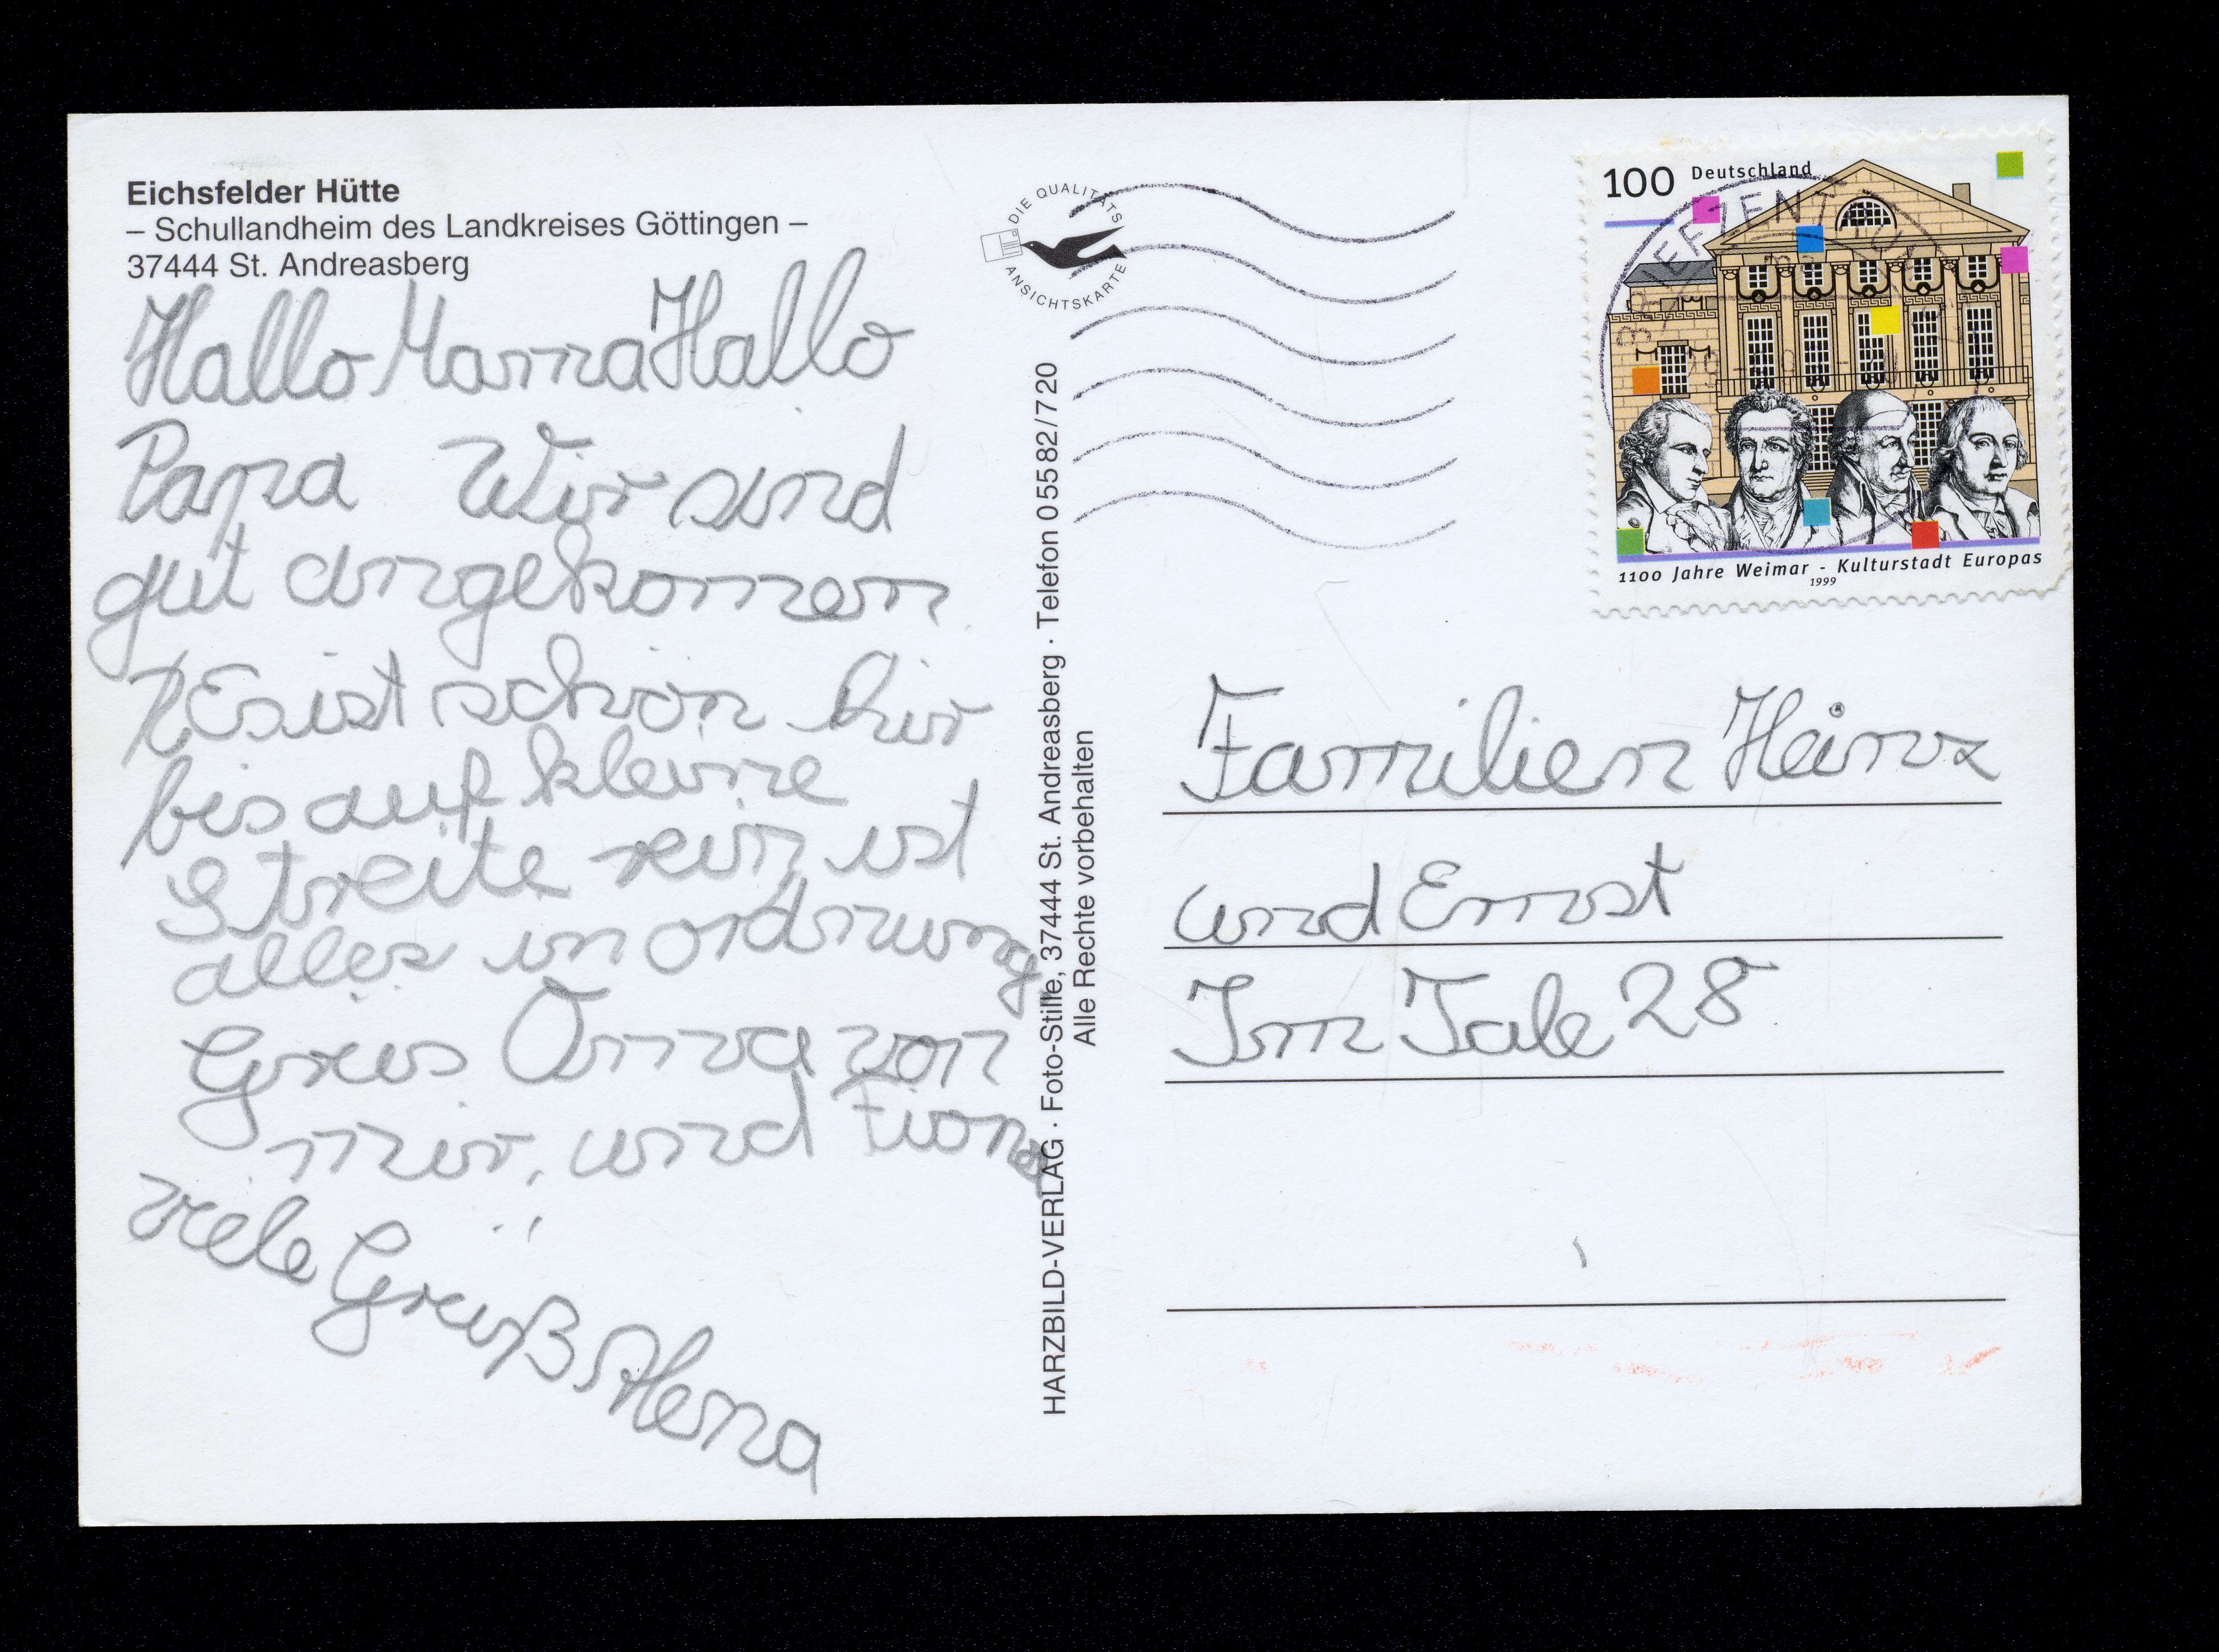 Eichsfelder Hütte
– Schullandheim des Landkreises Göttingen –
37444 St. Andreasberg
Hallo Mama Hallo
Papa Wir sind
gut angekomen
Es ist schön hir
bis auf kleine
Streite rein ist
alles in ordnung
Grus Oma von
mir, und Fiona
viele Gruß Alena
DIE QUALITÄTS
ANSICHTSKARTE
HARZBILD-VERLAG · Foto-Stille, 37444 St. Andreasberg · Telefon 0 55 82 / 7 20
Alle Rechte vorbehalten
100 Deutschland
BRIEFZENTRUM
1100 Jahre Weimar - Kulturstadt Europas
1999
Familien Heinz
und Ernst
Im Tale 28